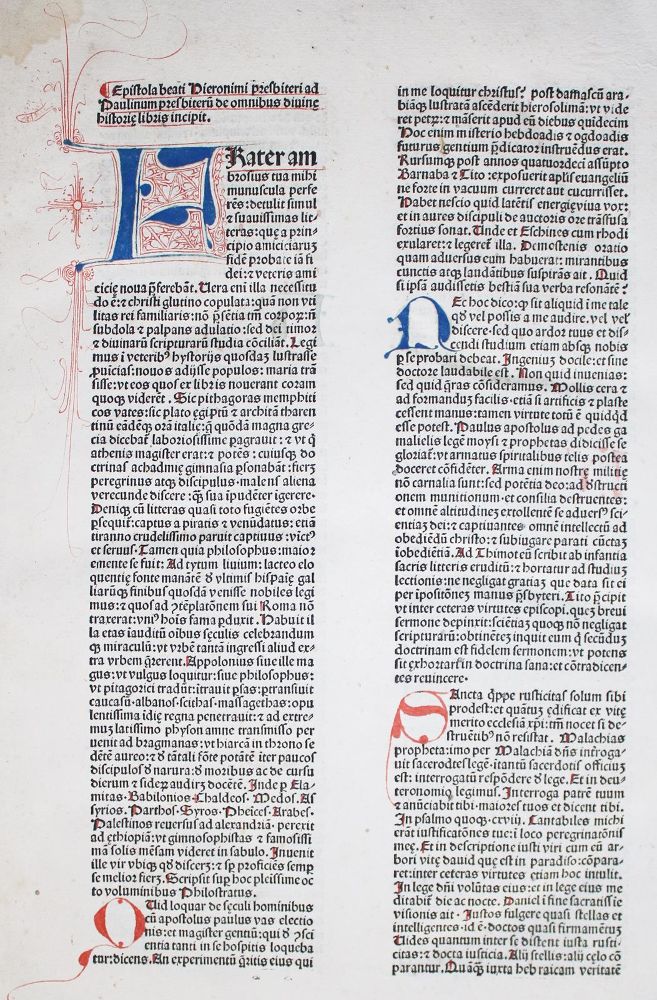 Epistola beati Hieronimi presbiteri ad
Paulinum presbiterū de omnibus diuinę
historię libris incipit.
FRater am
brosius tua mihi
munuscula perfe
rēs: detulit simul
⁊ suauissimas lit-
teras: quę a prin-
cipio amiciciaruꝫ
fidē probate iā fi
dei: ⁊ veteris ami
cicię noua p̄ferebāt. Uera eni illa necessitu
do ē: ⁊ christi glutino copulata: quā non vti
litas rei familiaris: nō p̄sētia tm̄ corpoꝝ: nō
subdola ⁊ palpans adulatio: sed dei timor
⁊ diuinaꝝ scripturaꝝ studia cōciliāt. Legi
mus i veteribꝰ hystorijs quosdaꝫ lustrasse
ꝓuicias: nouos adijsse populos: maria trā
sisse: vt eos quos ex libris nouerant coram
quoqꝫ viderēt. Sic pithagoras memphiti
cos vates: sic plato ęgiptū ⁊ architā tharen
tinū eādēqꝫ orā italię: q̄ quōdā magna gre-
cia dicebat̄ laboriosissime ꝑagrauit: ⁊ vt q̄
athenis magister erat: ⁊ potēs: cuiusqꝫ do
ctrinas achadmię gimnasia ꝑsonabāt: fieꝫ
peregrinus atqꝫ discipulus. malens aliena
verecunde discere: q̄ꝫ sua īpudēter igerere.
Deniqꝫ cū litteras quasi toto fugiētes orbe
ꝑsequit̄: captus a piratis ⁊ venūdatus: etiā
tiranno crudelissimo paruit captiuus: vīctꝰ
et seruus. Tamen quia philosophus: maior
emente se fuit: Ad tytum liuium: lacteo elo
quentię fonte manātē ꝺ vltimis hispaię gal
liarūqꝫ finibus quosdā venisse nobiles legi
mus: ⁊ quos ad ꝯtēplatōnem sui Roma nō
traxerat: vniꝰ hoīs fama ꝑduxit. Habuit il
la etas iauditū oībus sęculis celebrandum
qꝫ miraculū: vt vrbē tantā ingressi aliud ex-
tra vrbem q̄rerent. Appolonius siue ille ma
gus: vt vulgus loquitur: siue philosophus:
vt pitagorici tradūt: itrauit ꝑsas: ꝑtransiuit
caucasū. albanos. scithas. massagethas: opu
lentissima idię regna penetrauit: ⁊ ad extre-
muꝫ latissimo physon amne transmisso per
uenit ad bragmanas: vt hiarcā in throno se
dētē aureo: ⁊ ꝺ tātali fōte potātē iter paucos
discipulos ꝺ narura: ꝺ moribus ac de cursu
dierum ⁊ sideꝝ audiꝫ docētē. Inde ꝑ Ela-
mitas. Babilonios. Chaldeos. Medos. As
syrios. Parthos. Syros. Pheices. Arabes.
Palestinos reuersus ad alexandriā. perexit
ad ęthiopiā: vt gimnosophistas ⁊ famosissi
mā solis mēsam videret in sabulo. Inuenit
ille vir vbiqꝫ qꝺ disceꝫ: ⁊ sꝑ proficiēs semꝑ
se melior fieꝫ. Scripsit suꝑ hoc plēissime oc
to voluminibus Philostratus.
QUid loquar de sęculi hominibus
cū apostolus paulus vas electio
nis: et magister gentiū: qui ꝺ ꝯsci
entia tanti in se hospitis loqueba
tur: dicens. An experimentū q̄ritis eius qui
in me loquitur christus? post damascū ara-
biāqꝫ lustratā ascēderit hierosolimā: vt vide
ret petꝝ: ⁊ māserit apud eū diebus quidecim
Hoc enim misterio hebdoadis ⁊ ogdoadis
futurus gentium p̄dicator instruēdus erat.
Rursumqꝫ post annos quatuordeci assūpto
Barnaba ⁊ Tito: exposuerit aplis euangeliū
ne forte in vacuum curreret aut cucurrisset.
Habet nescio quid latētis energię viua vox:
et in aures discipuli de auctoris ore trāsfusa
fortius sonat. Unde et Eschines cum rhodi
exularet: ⁊ legerēt illa. Demostenis oratio
quam aduersus eum habuerat: mirantibus
cunctis atqꝫ laudātibus suspirās ait. Quid
si ipsā audissetis bestiā sua verba resonātē?
NEc hoc dico: qꝫ sit aliquid i me tale
qꝺ vel possis a me audire. vel vel
discere. sed quo ardor tuus et dis-
cendi studium etiam absqꝫ nobis
ꝑ se probari debeat. Ingeniuꝫ docile: et sine
doctore laudabile est. Non quid inuenias:
sed quid q̄ras cōsideramus. Mollis cera ⁊
ad formanduꝫ facilis. etiā si artificis ⁊ plaste
cessent manus: tamen virtute totū ē quidqꝺ
esse potest. Paulus apostolus ad pedes ga
malielis legē moysi ⁊ prophetas didicisse se
gloriat̄: vt armatus spiritalibus telis postea
doceret cōfidēter. Arma enim nostrę militię
nō carnalia sunt: sed potētia deo: ad ꝺstructi
onem munitionum. et consilia destruentes:
et omnē altitudineꝫ extollentē se aduersꝰ sci-
entiaꝫ dei: ⁊ captiuantes omnē intellectū ad
obediēdū christo: ⁊ subiugare parati cūctaꝫ
iobediētiā. Ad Thimoteū scribit ab infantia
sacris litteris eruditū: ⁊ hortatur ad studiuꝫ
lectionis: ne negligat gratiaꝫ que data sit ei
per īpositōneꝫ manus p̄sbyteri. Tito p̄cipit
vt inter ceteras virtutes episcopi. queꝫ breui
sermone depinxit: sciētiaꝫ quoqꝫ nō negligat
scripturarū: obtinētēꝫ inquit eum q̄ secūduꝫ
doctrinam est fidelem sermonem: vt potens
sit exhortari in doctrina sana: et cōtradicen-
tes reuincere.
SAncta q̄ppe rusticitas solum sibi
prodest: et quātuꝫ ędificat ex vitę
merito ecclesiā xp̄i: tm̄ nocet si de-
struētibꝰ nō resistat. Malachias
propheta: imo per Malachiā dn̄s intēroga-
uit sacerdotes legē. itantū sacerdotis officiuꝫ
est: interrogatū respōdere ꝺ lege. Et in deu-
teronomio legimus. Interroga patrē tuum
⁊ anūciabit tibi. maiores tuos et dicent tibi.
In psalmo quoqꝫ. cxviij. Cantabiles michi
erāt iustificatōnes tue: i loco peregrinatōnis
meę. Et in descriptione iusti viri cum eū ar-
bori vitę dauid quę est in paradiso: cōpara-
ret: inter ceteras virtutes etiam hoc intulit.
In lege dn̄i volūtas eius: et in lege eius me
ditabit̄ die ac nocte. Daniel ī fine sacratissīe
visionis ait. Iustos fulgere quasi stellas et
intelligentes. id ē. doctos quasi firmamētuꝫ
Uides quantum inter se distent iusta rusti-
citas: ⁊ docta iusticia. Alij stellis: alij cęlo cō
parantur. Quāqꝫ iuxta hebraicam veritatē